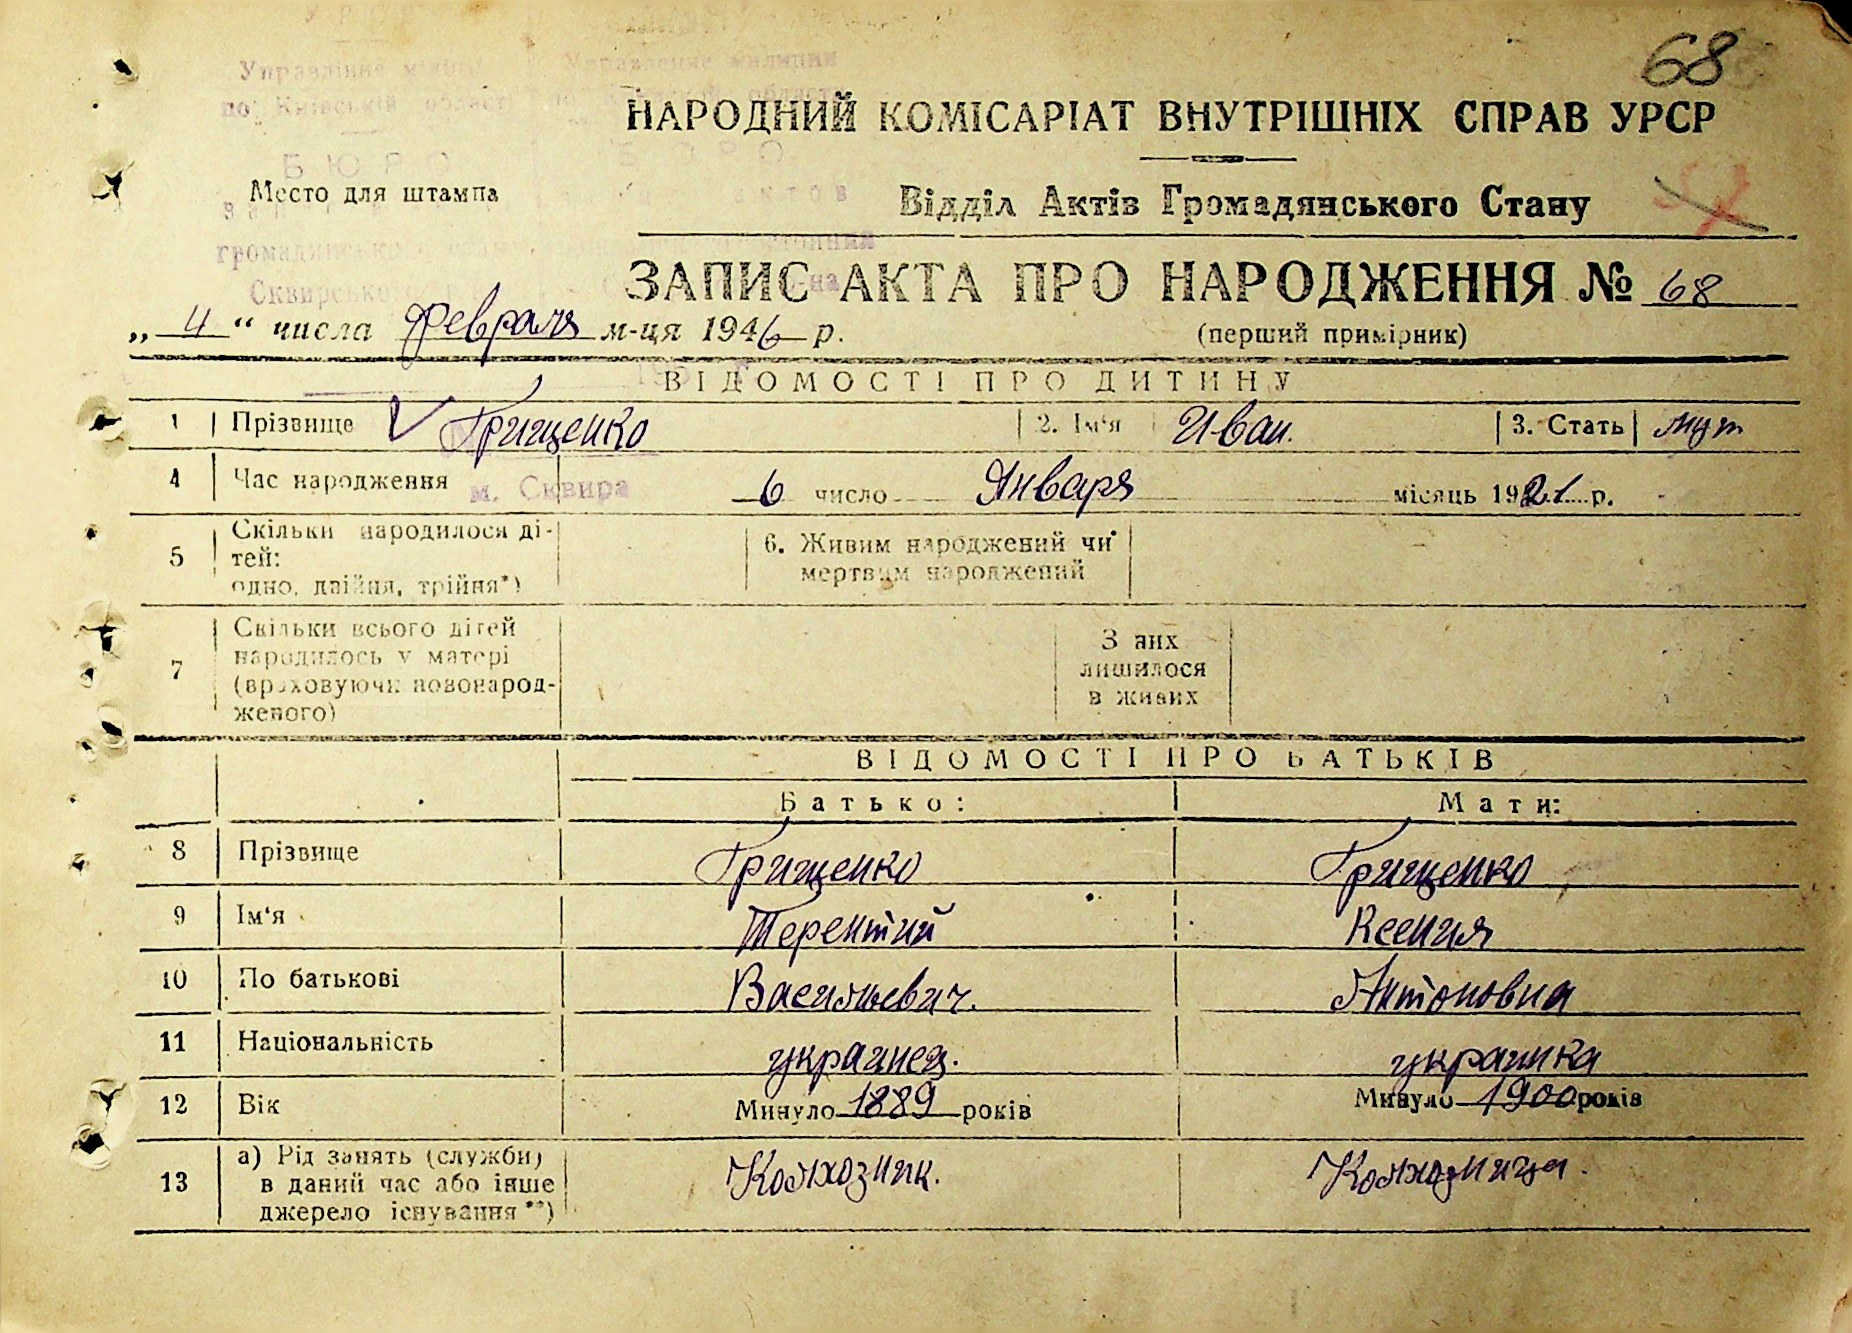 68
Управління міліції Управление милиции
по Київській області по Киевской области
НАРОДНИЙ КОМІСАРІАТ ВНУТРІШНІХ СПРАВ УРСР
БЮРО БЮРО
Место для штампа
Відділ Актів Громадянського Стану
ЗАПИС АКТА ПРО НАРОДЖЕННЯ № 68
„ 4 “ числа Февраля м-ця 1946 р.
(перший примірник)
ВІДОМОСТІ ПРО ДИТИНУ
1 Прізвище Грищенко 2. Ім'я Иван. 3. Стать муж
4 Час народження м. Сквира 6 число Января місяць 1921 р.
5 Скільки народилося ді-
тей:
одно, двійня, трійня*)
6. Живим народжений чи
мертвим народжений
7 Скільки всього дітей
народилось у матері
(враховуючи новонарод-
женого)
З них
лишилося
в живих
ВІДОМОСТІ ПРО БАТЬКІВ
Батько: Мати:
8 Прізвище Грищенко Грищенко
9 Ім'я Терентий Ксения
10 По батькові Васильевич. Антоновна
11 Національність украинец. украинка
12 Вік Минуло 1889 років Минуло 1900 років
13 а) Рід занять (служби) Колхозник. Колхозница.
в даний час або інше
джерело існування**)